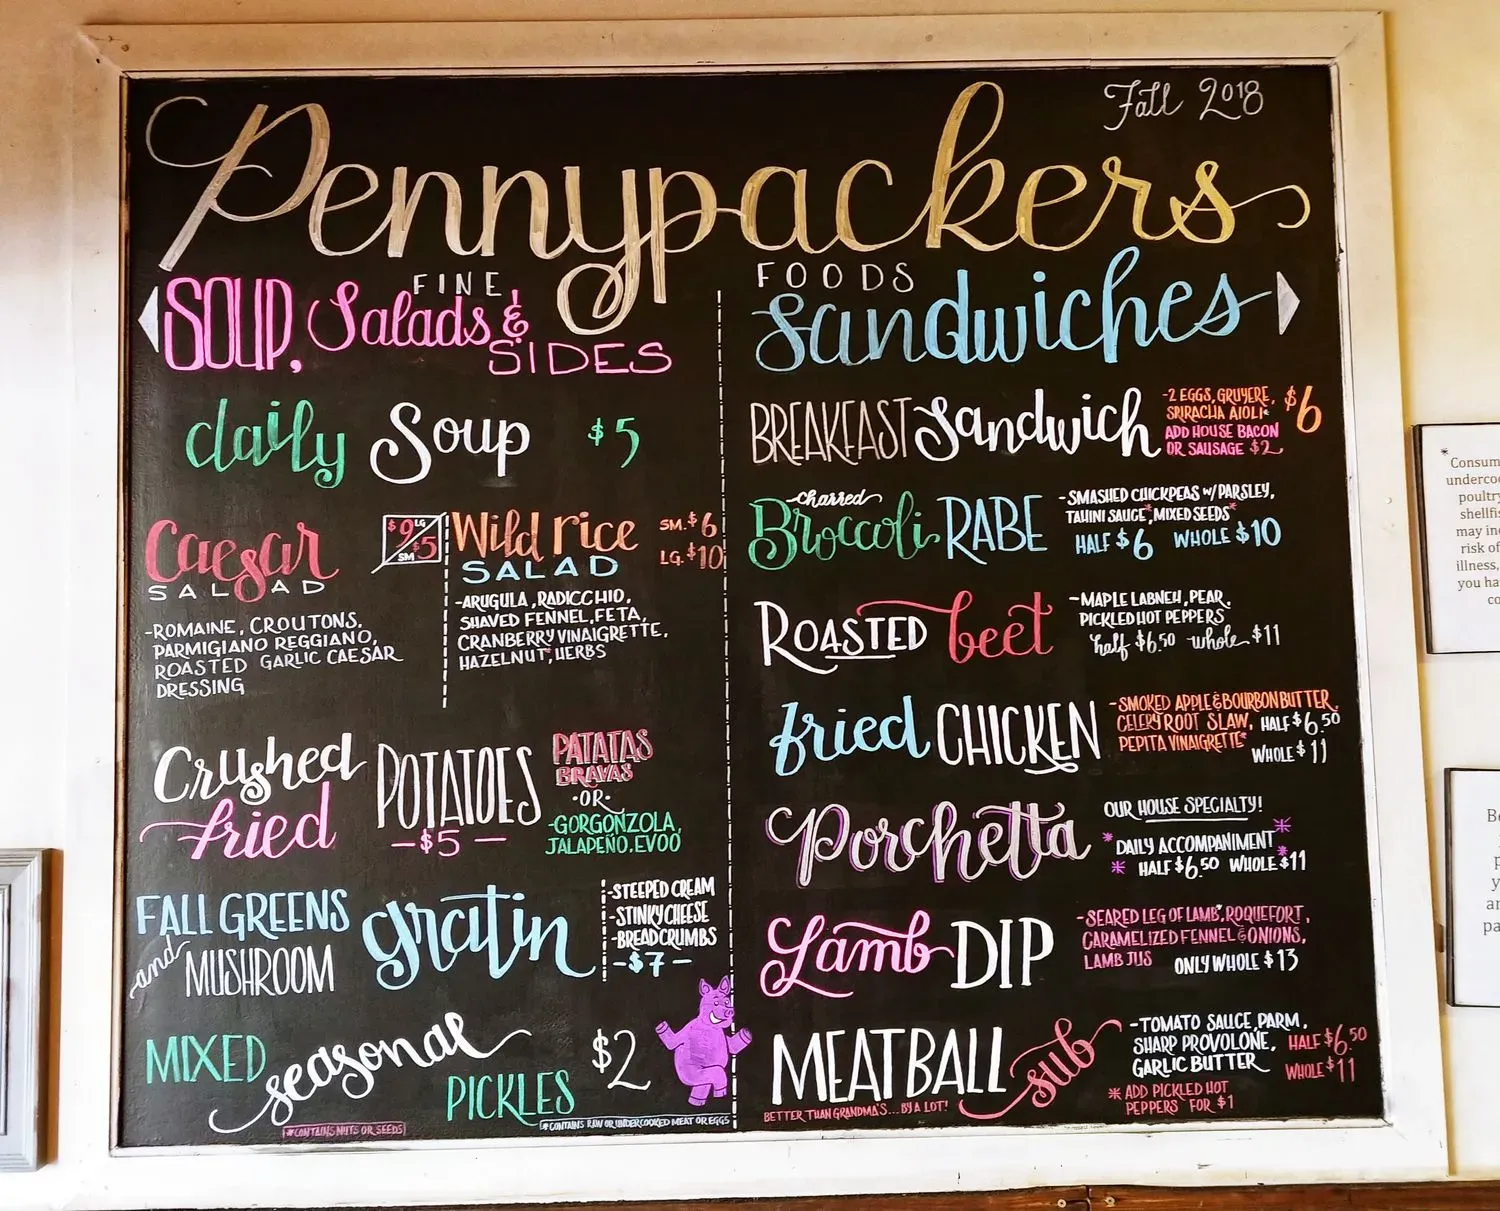 Fall 2018
Pennypackers
FINE FOODS
SOUP, Salads &
SIDES
daily Soup $5
Caesar
SALAD
$9 LG
SM $5
-ROMAINE, CROUTONS,
PARMIGIANO REGGIANO,
ROASTED GARLIC CAESAR
DRESSING
Wild rice
SALAD
SM. $6
LG. $10
-ARUGULA, RADICCHIO,
SHAVED FENNEL, FETA,
CRANBERRY VINAIGRETTE,
HAZELNUT*, HERBS
Crushed
fried
POTATOES
-$5-
PATATAS
BRAVAS
-OR-
-GORGONZOLA,
JALAPEÑO, EVOO
FALL GREENS
and MUSHROOM
gratin
-STEEPED CREAM
-STINKY CHEESE
-BREADCRUMBS
-$7-
MIXED seasonal PICKLES $2
*CONTAINS NUTS OR SEEDS
*CONTAINS RAW OR UNDERCOOKED MEAT OR EGGS
Sandwiches
BREAKFAST Sandwich
-2 EGGS, GRUYERE,
SRIRACHA AIOLI*
ADD HOUSE BACON
OR SAUSAGE $2
$6
charred
Broccoli RABE
-SMASHED CHICKPEAS W/ PARSLEY,
TAHINI SAUCE*, MIXED SEEDS*
HALF $6 WHOLE $10
ROASTED beet
-MAPLE LABNEH, PEAR,
PICKLED HOT PEPPERS
half $6.50 whole $11
fried CHICKEN
-SMOKED APPLE & BOURBON BUTTER,
CELERY ROOT SLAW, HALF $6.50
PEPITA VINAIGRETTE*
WHOLE $11
Porchetta
OUR HOUSE SPECIALTY!
*DAILY ACCOMPANIMENT*
* HALF $6.50 WHOLE $11 *
Lamb DIP
-SEARED LEG OF LAMB*, ROQUEFORT,
CARAMELIZED FENNEL & ONIONS,
LAMB JUS ONLY WHOLE $13
MEATBALL sub
BETTER THAN GRANDMA'S...BY A LOT!
-TOMATO SAUCE, PARM,
SHARP PROVOLONE,
GARLIC BUTTER
HALF $6.50
WHOLE $11
* ADD PICKLED HOT
PEPPERS FOR $1
*
undercoo
poultry
shellfis
risk of
illness,
you ha